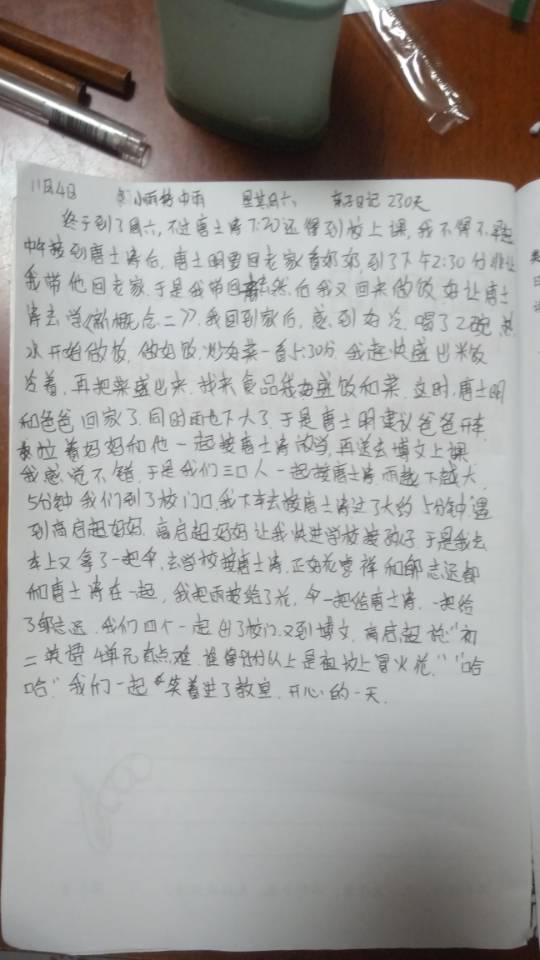 11月4日 小雨转中雨 星期六 亲子日记 230天
终于到了周六,不过唐士涛7:20还得到校上课,我不得不早起
中午接到唐士涛后,唐士明要回老家看奶奶,到了下午2:30分非让
我带他回老家.于是我带回去然后我又回来做饭好让唐士
涛去学《新概念二》,我回到家后,感到好冷,喝了2碗热
水开始做饭,做好饭,炒好菜一看5:30分.我赶快盛出米饭
冷着,再把菜盛出来.找来食品袋好盛饭和菜.这时,唐士明
和爸爸回家了.同时雨也下大了.于是唐士明建议爸爸开车
拉着妈妈和他一起接唐士涛放学,再送去博文上课
我感觉不错,于是我们三口人一起接唐士涛雨越下越大
5分钟我们到了校门口,我下车去接唐士涛过了大约5分钟遇
到高启超妈妈.高启超妈妈让我快进学校接孩子.于是我去
车上又拿了一把伞,去学校接唐士涛.正好花梦祥和邹志远都
和唐士涛在一起,我把雨披给了花,伞一把给唐士涛,一把给
了邹志远.我们四个一起出了校门.又到博文.高启超说:"初
二英语4单元有点难 谁得95分以上是祖坟上冒火花.""哈
哈"我们一起笑着进了教室.开心的一天.